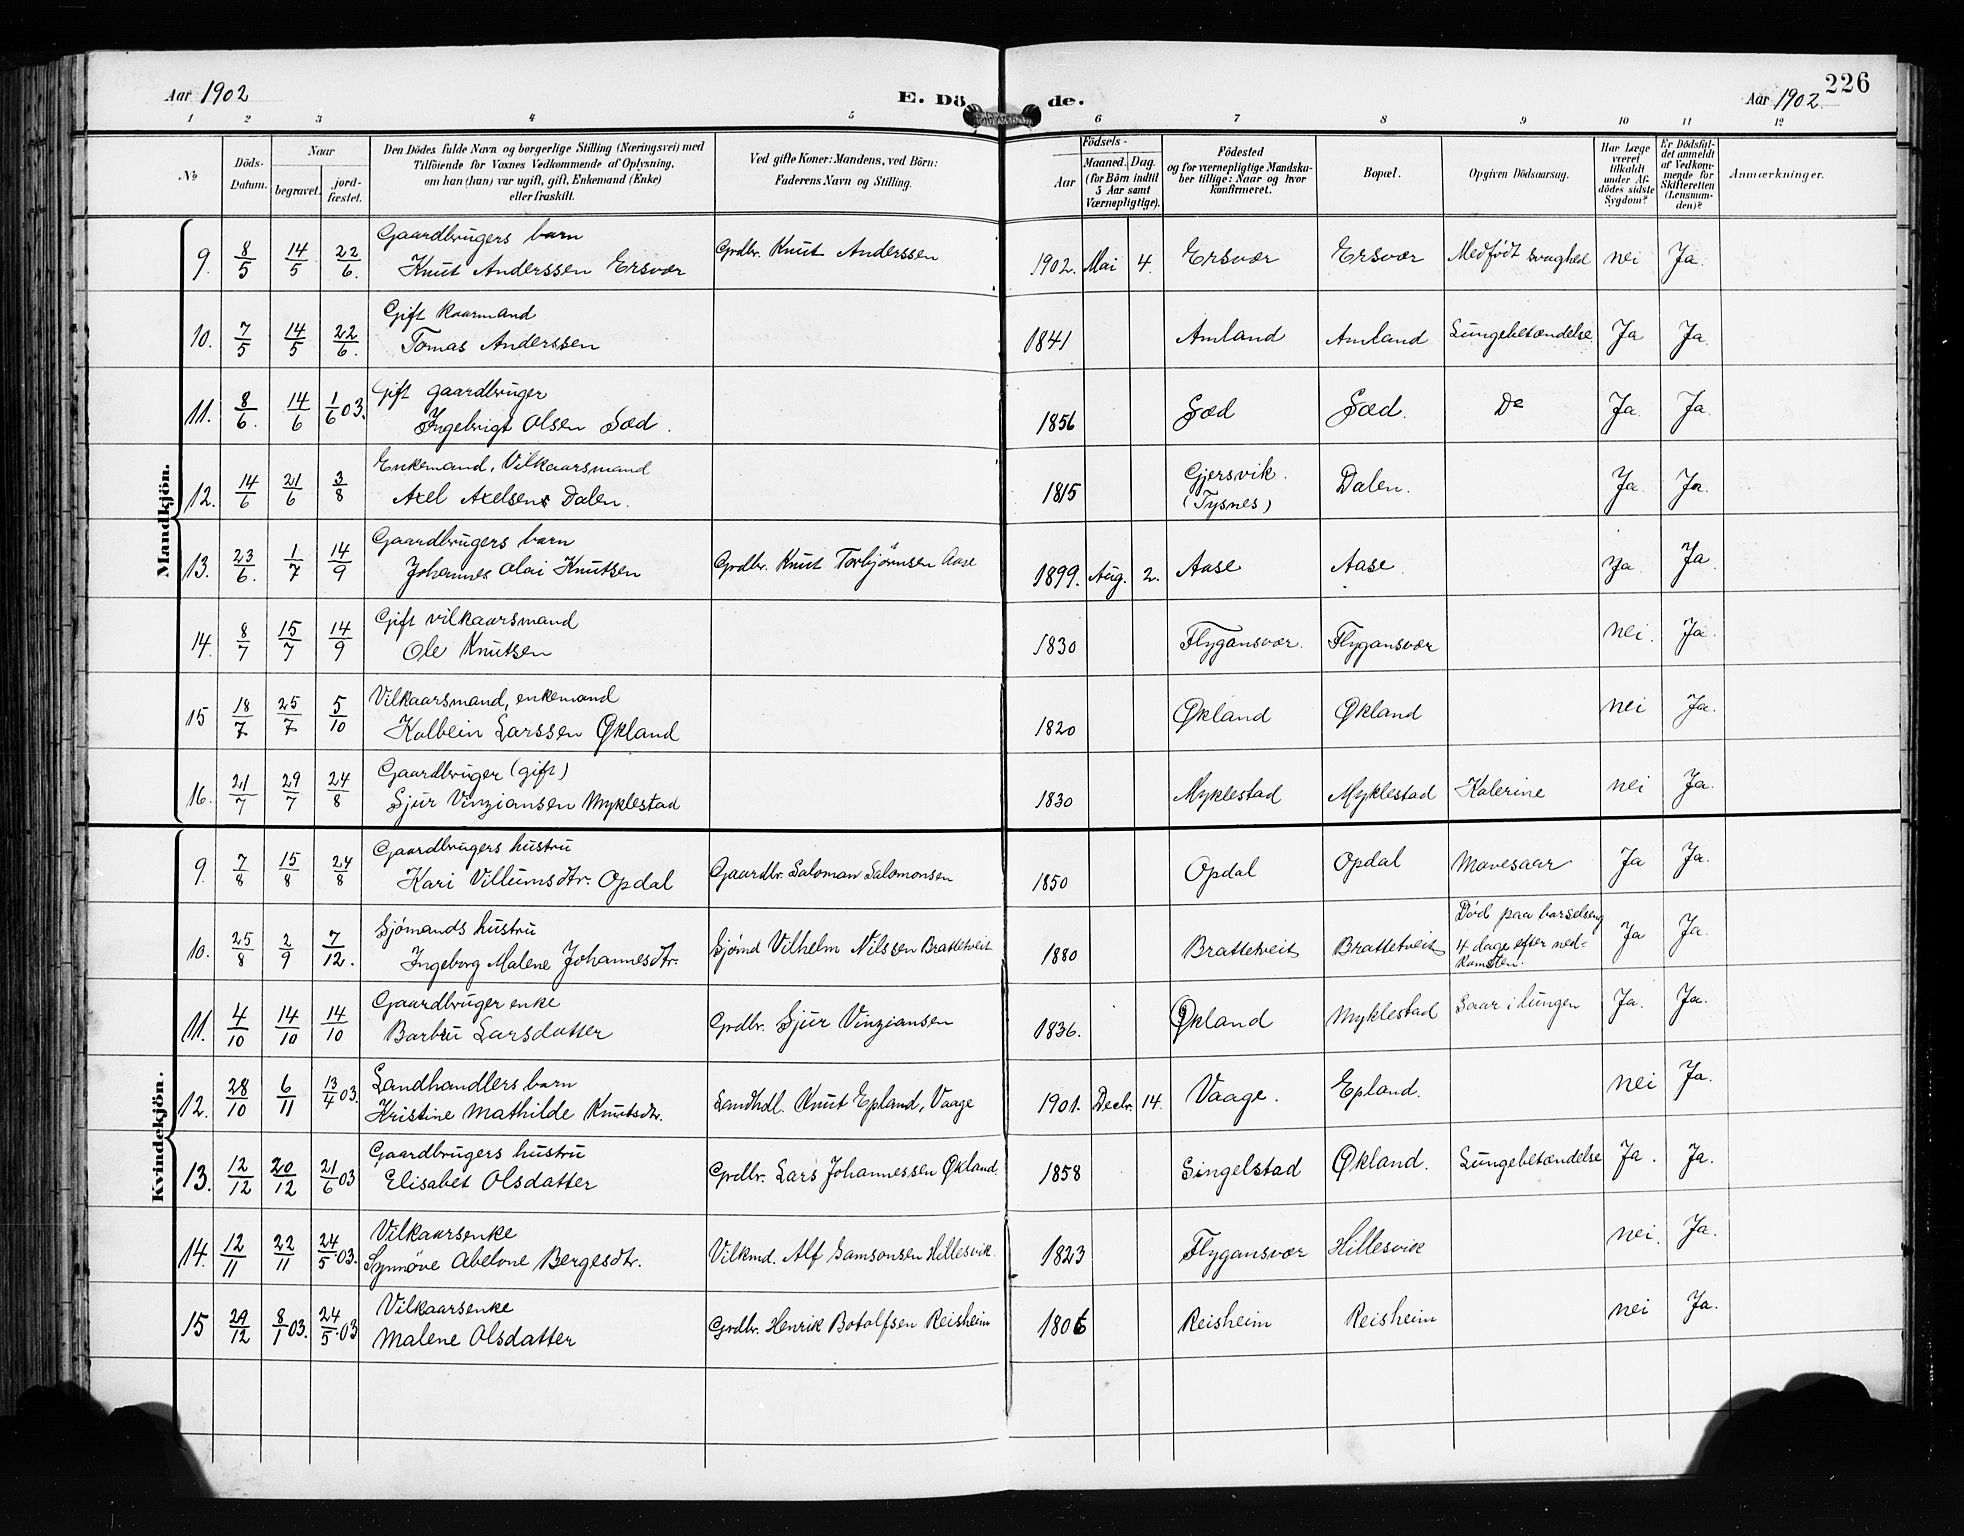 Aar 1902 E. Dö de. Aar 1902. 226
1 2 3 4 5 6 7 8 9 10 11 12
No
Döds-Datum.
Naar
begravet.
jord-fæstet.
Den Dödes fulde Navn og borgerlige Stilling (Næringsvei) med
Tilföiende for Voxnes Vedkommende af Oplysning,
om han (hun) var ugift, gift, Enkemand (Enke)
eller fraskilt.
Ved gifte Koner: Mandens, ved Börn:
Faderens Navn og Stilling.
Födsels-
Aar
Maaned. Dag.
(for Börn indtil
5 Aar samt
Værnepligtige).
Födested
og for værnepligtige Mandska-
ber tillige: Naar og hvor
konfirmeret.
Bopæl.
Opgiven Dödsaarsag.
Har Læge
været
tilkaldt
under Af-
dödes sidste
Sygdom?
Er Dödsfal-
det anmeldt
af Vedkom-
mende for
Skifteretten
(Lensman-
den)?
Anmærkninger.
Mandkjön.
Gaardbrugers barn
9. 8/5 14/5 22/6. Knut Anderssen Ersvær Grdbr. Knut Anderssen 1902. Mai 4. Ersvær Ersvær Medfødt svaghed nei Ja.
Gift kaarmand
10. 7/5 14/5 22/6. Tomas Anderssen 1841 Amland Amland Lungebetændelse Ja Ja.
Gift gaardbruger
11. 8/6. 14/6 1/6 03. Ingebrigt Olsen Sæd. 1856 Sæd Sæd. Do Ja. Ja.
Enkemand, Vilkaarsmand
12. 14/6 21/6 3/8 Axel Axelsen Dalen. 1815 Gjersvik. (Tysnes) Dalen. Ja. Ja.
Gaardbrugers barn
13. 23/6. 1/7 14/9 Johannes Olai Knutsen Grdbr. Knut Torbjørnsen Aase 1899. Aug. 2. Aase Aase. Ja. Ja.
Gift vilkaarsmand
14. 8/7 15/7 14/9 Ole Knutsen 1830 Flygansvær. Flygansvær nei. Ja.
Vilkaarsmand, enkemand
15 18/7 25/7 5/10 Kolbein Larssen Økland 1820 Økland Økland nei Ja.
Gaardbruger (gift)
16. 21/7 29/7 24/8 Sjur Vinziansen Myklestad 1830 Myklestad Myklestad Kolerine nei Ja.
Kvindekjön.
Gaardbrugers hustru
9. 7/8 15/8 24/8 Kari Villumsdtr. Opdal Gaardbr. Saloman Salomonsen 1850 Opdal Opdal Mavesaar Ja Ja.
Sjømands hustru
10. 25/8 2/9 7/12. Ingeborg Malene Johannesdtr. Sjømd Vilhelm Nilssen Brattetveit 1880 Brattetveit Brattetveit Død paa barselseng
4 dage efter ned-
komsten. Ja Ja.
Gaardbruger enke
11. 4/10 14/10 14/10 Barbru Larsdatter Grdbr. Sjur Vinziansen 1836. Økland Myklestad Saar i lungen Ja. Ja.
Landhandlers barn
12. 28/10 6/11 13/4 03. Kristine Mathilde Knutsdtr. Landhdl. Knut Epland, Vaage 1901. Decbr. 14. Vaage. Epland. nei Ja.
Gaardbrugers hustru
13. 12/12 20/12 21/6 03 Elisabet Olsdatter Grdbr. Lars Johannessen Økland. 1858 Singelstad Økland. Lungebetændelse Ja. Ja.
Vilkaarsenke
14. 12/11 22/11 24/5. 03. Synnøve Abelone Bergesdtr. Vilkmd. Alf Samsonsen Hillesvik. 1823 Flygansvær Hillesvik nei. Ja.
Vilkaarsenke
15 29/12 8/1 03. 24/5. 03 Malene Olsdatter Grdbr. Henrik Botolfsen Reisheim 1806 Reisheim Reisheim nei Ja.